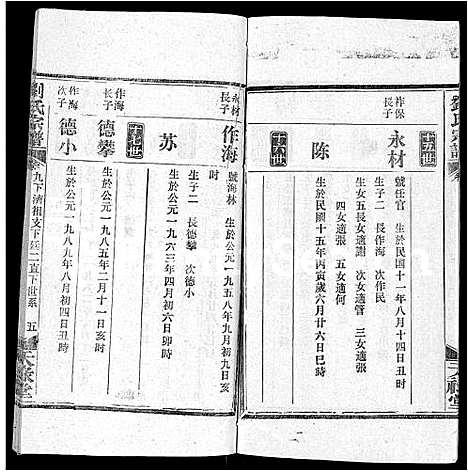 十五世
祚保長子
永材
號任官 生於民國十一年八月十四日丑時
生子二 長作海 次作民
生女五長女適劉 次女適管 三女適張
四女適張 五女適何
陳
生於民國十五年丙寅歲六月廿六日巳時
十六世
永材長子
作海
號海林 生於公元一九五八年九月初七日亥時
生子二 長德攀 次德小
蘇
生於公元一九六三年四月初六日卯時
十七世
作海長子
德攀
生於公元一九八五年二月十一日亥時
作海次子
德小
生於公元一九八九年八月初四日丑時
劉氏宗譜
卷九下 濟祖支下 二直下世系 五